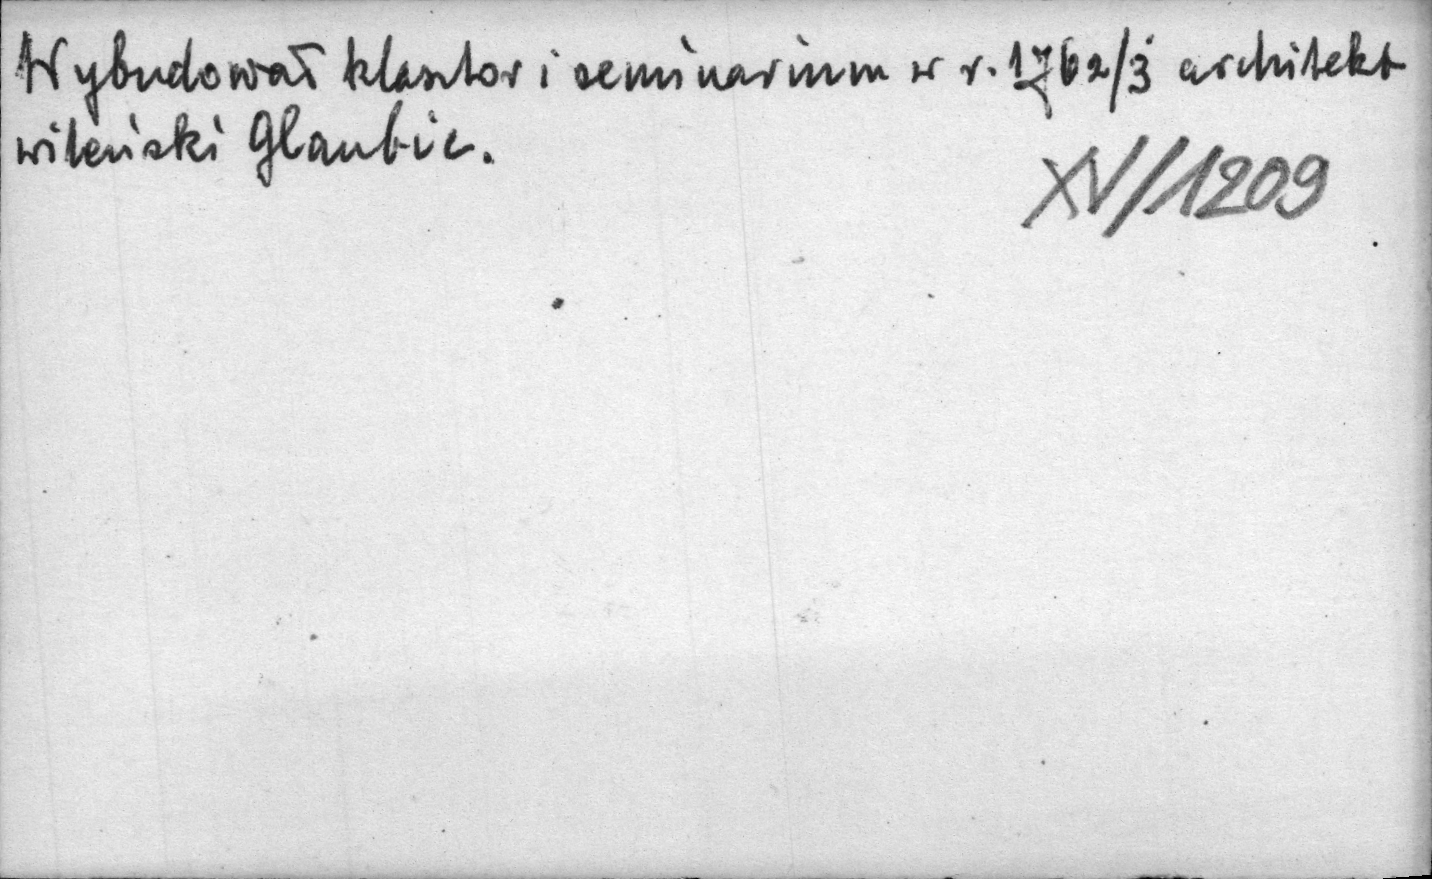 Wybudował klasztor i seminarium w r. 1762/3 architekt
wileński Glaubic.
XV/1209